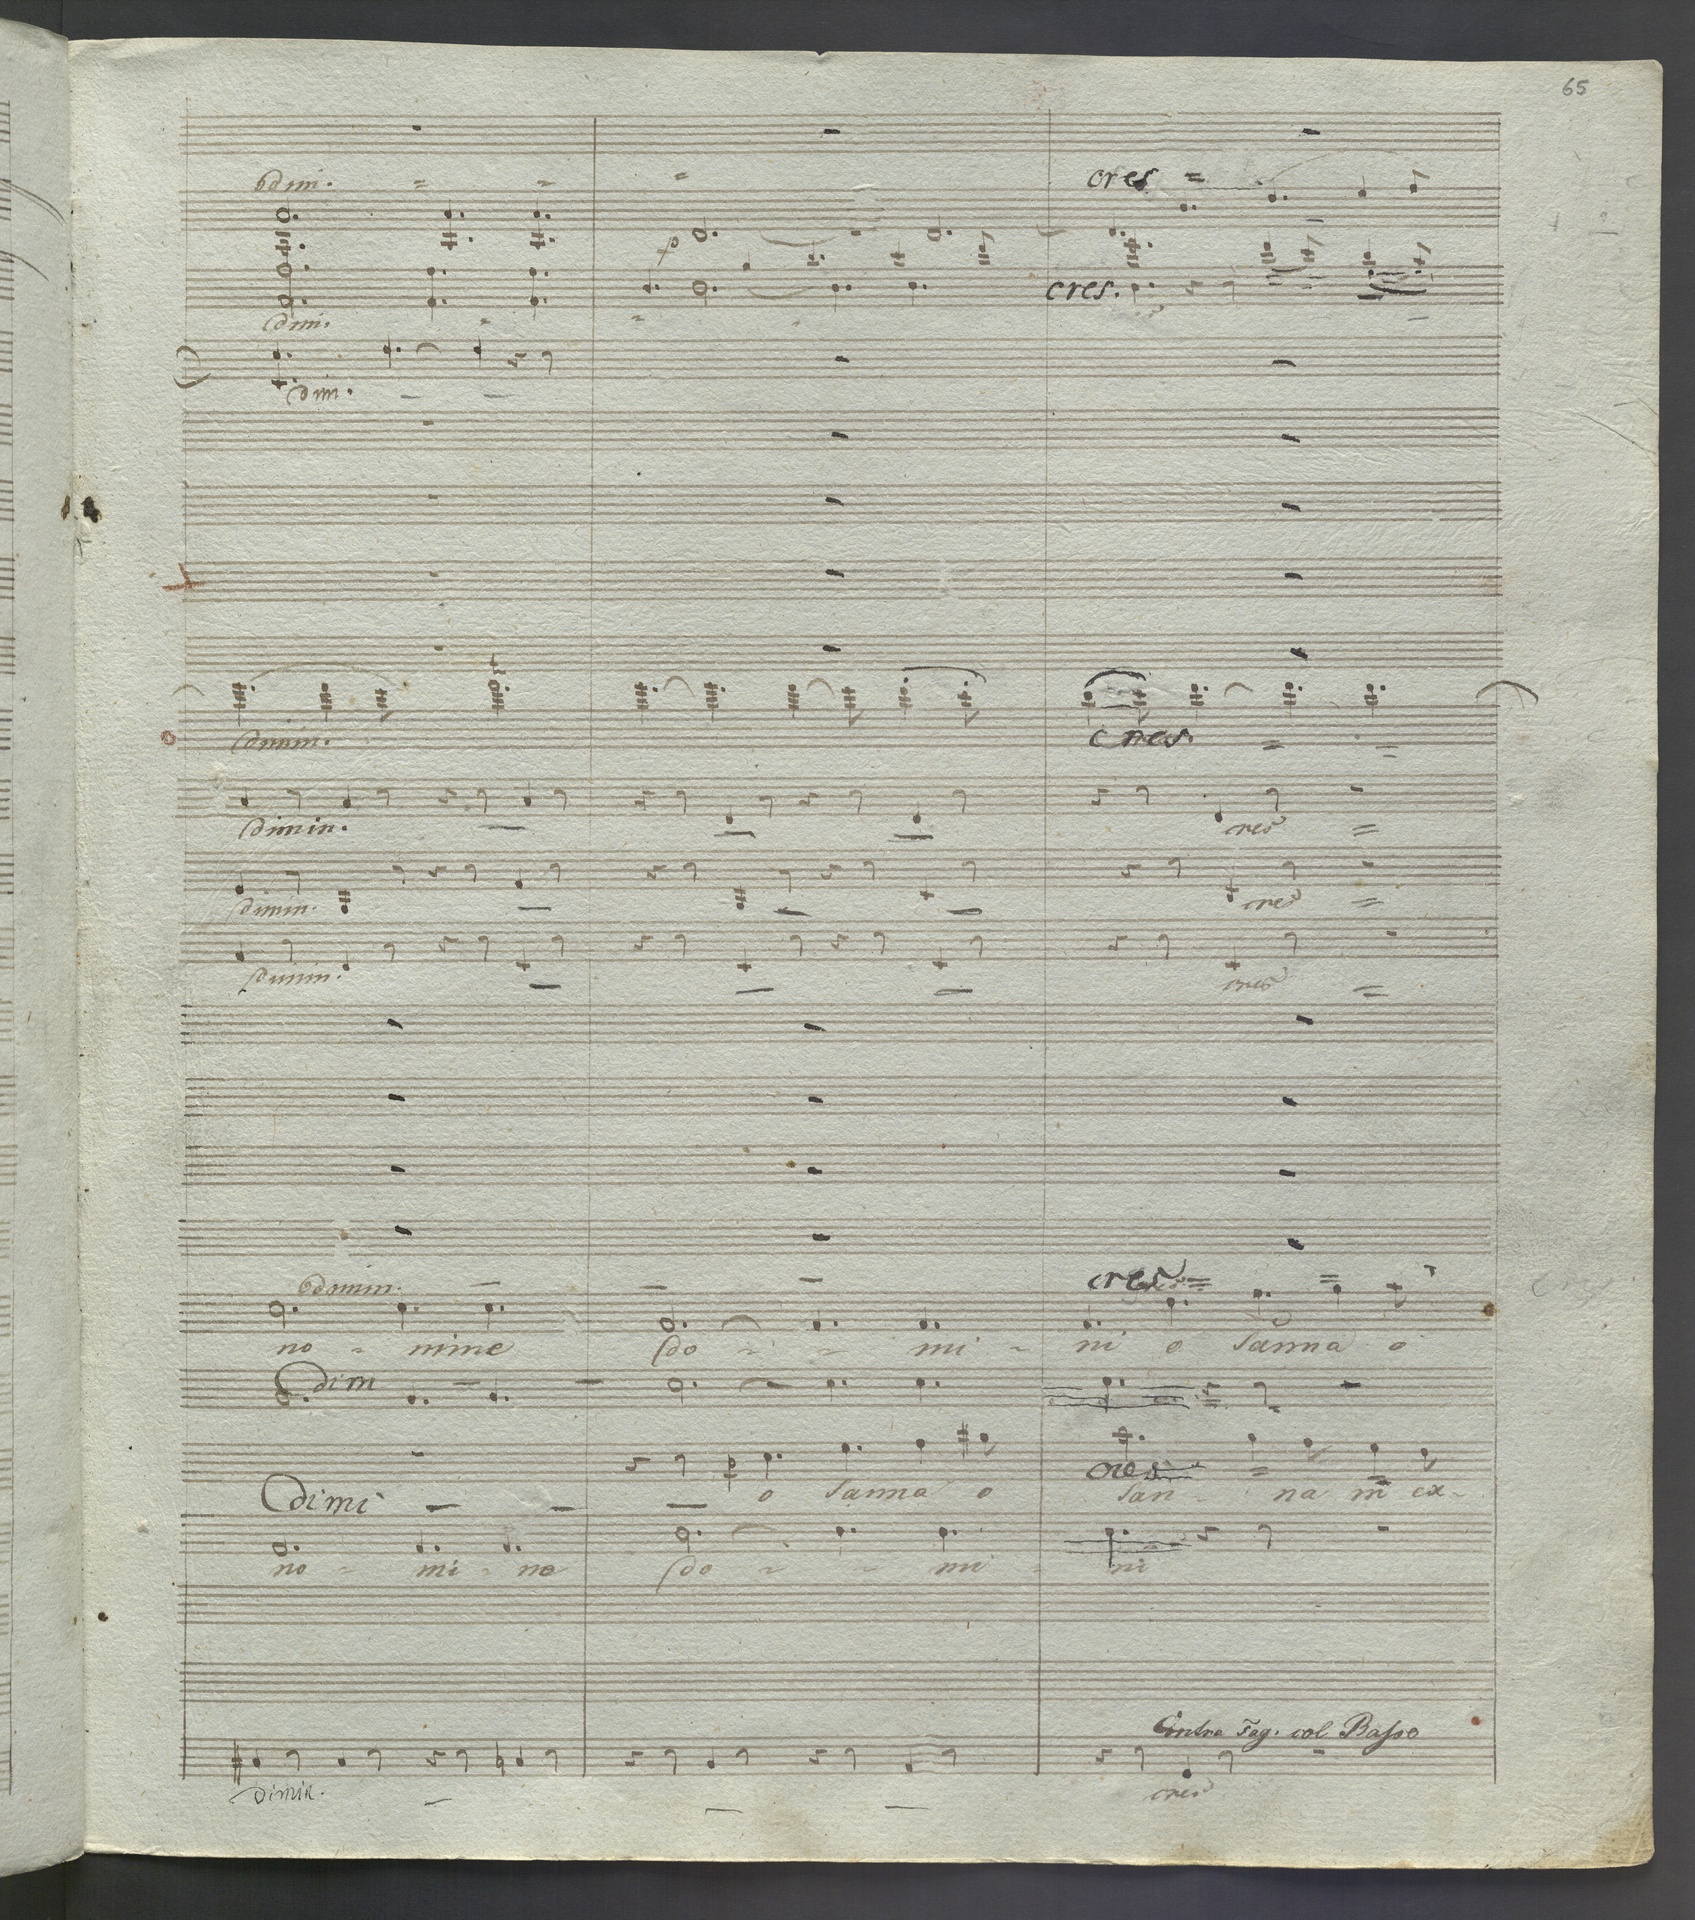 65
dim. cres
p
cres.
dim.
dim.
dimin. cres.
dimin. cres
dimin. cres
dimin. cres
dimin. cres
no - mine do - - mi - ni o sanna o
dim
cres
dimi o sanna o san - na in ex-
no - mi - ne do - - mi - ni
Contra Fag. col Basso
dimin. cres